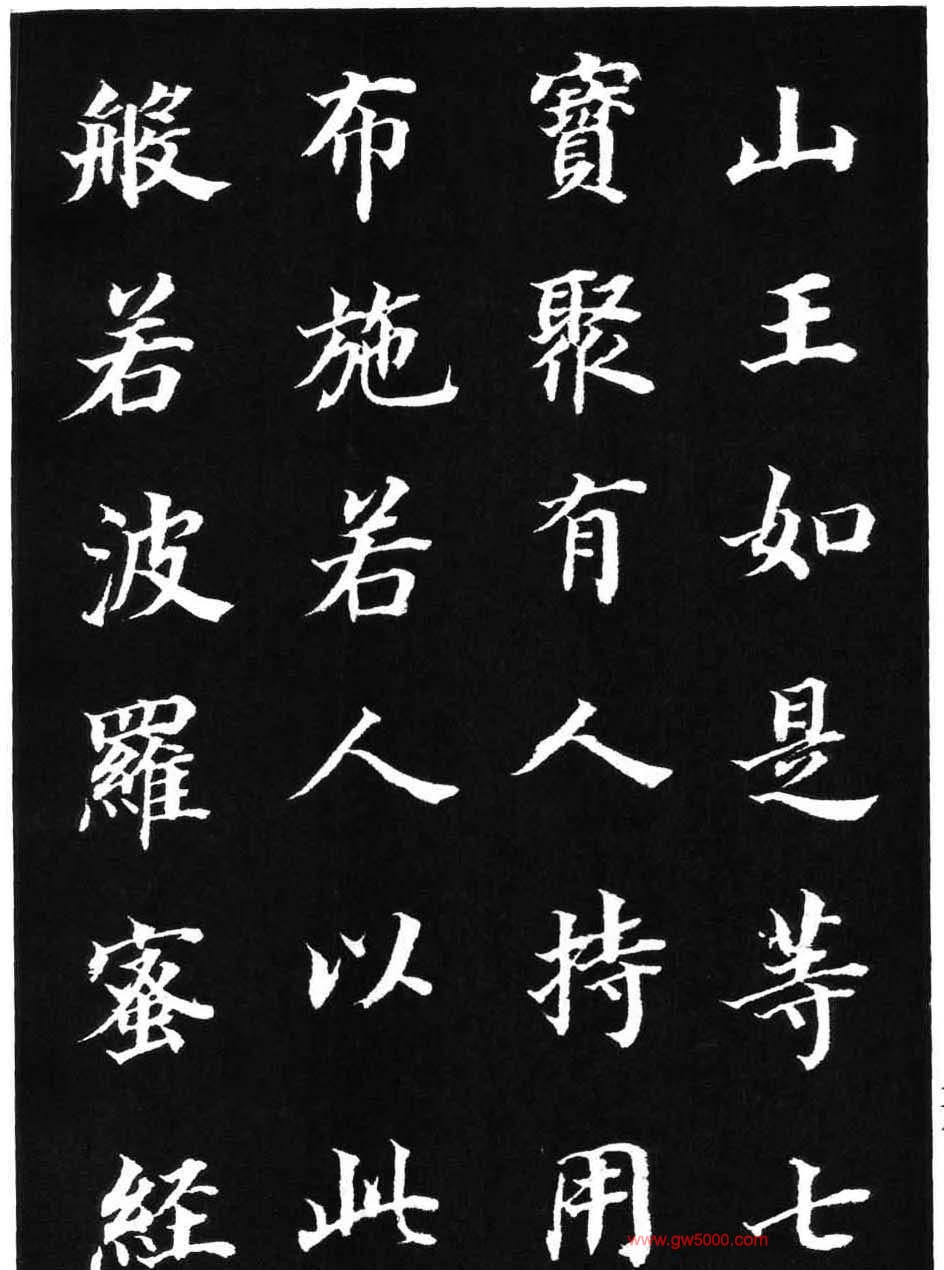 山王如是等七
寶聚有人持用
布施若人以此
般若波羅蜜經
www.gw5000.com